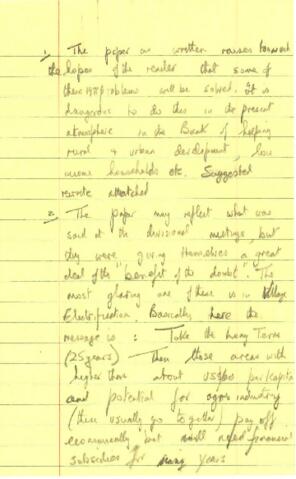 1. The paper as written raises too much
the hopes of the reader that some of
these problems will be solved. It is
dangerous to do this in the present
atmosphere in the Bank of helping
rural & urban development, low
income households etc. Suggested
rewrite attached
2. The paper may reflect what was
said at the divisional meetings, but
they were giving themselves a great
deal of the "benefit of the doubt". The
most glaring one of these is in Village
Electrification. Basically here the
message is: Take the Long Term
(25 years) Then those areas with
higher than about US$60 per/capita
and potential for agro industry
(these usually go together) pay off
economically but will need financial
subsidies for many years